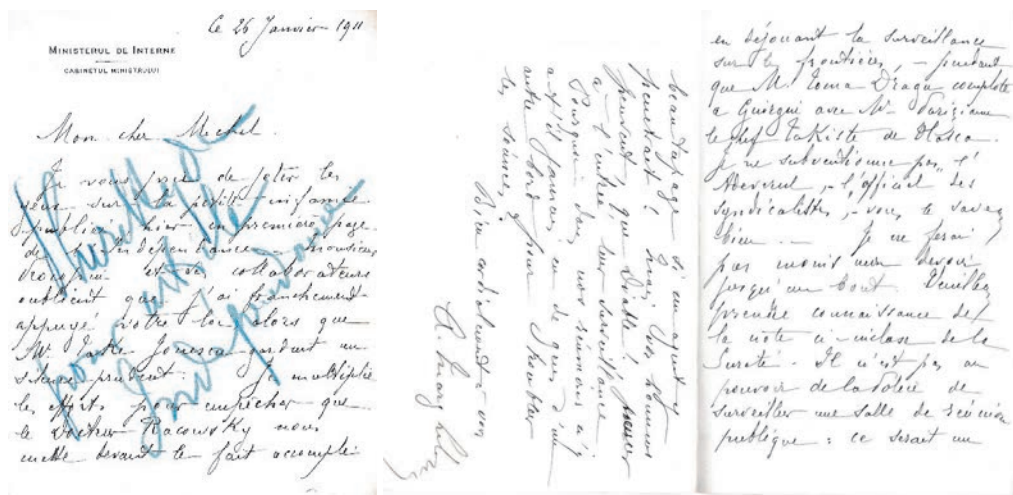 Ce 26 Janvier 1911
MINISTERUL DE INTERNE
CABINETUL MINISTRULUI
Mon cher Michel.
Je vous prie de jeter les
yeux sur la petite infamie
publiée hier en première page
de l'Indépendance. Monsieur
et ses collaborateurs
oublient que j'ai franchement
appuyé votre loi alors que
Mr. Take Jonescu gardait un
silence prudent. Je multiplie
les efforts pour empêcher que
le Docteur Racowsky nous
mette devant le fait accompli
pour article
Indépendance
en déjouant la surveillance
sur les frontières, – pendant
que M. Toma Dragu complote
a Guirgui avec Mr.
le chef Takiste de Vlasca.
Je ne subventionne pas l'
Adeverul, – l'officiel des
syndicalistes, – vous le savez
bien. — Je ne ferai
pas moins mon devoir
jusqu'au bout. Veuillez
prendre connaissance de
la note ci-incluse de la
Sureté. Il n'est pas au
pouvoir de la Police de
surveiller une salle de réunion
publique: ce serait un
beau tapage si un agent y
pénétrait! Mais vos hommes
peuvent, que Diable!
à l'entrée leur surveillance.
Pourquoi dans nos réunions n'y
a-t-il jamais eu de gens d'un
autre bord pour troubler
les séances.
Bien cordialement à vous